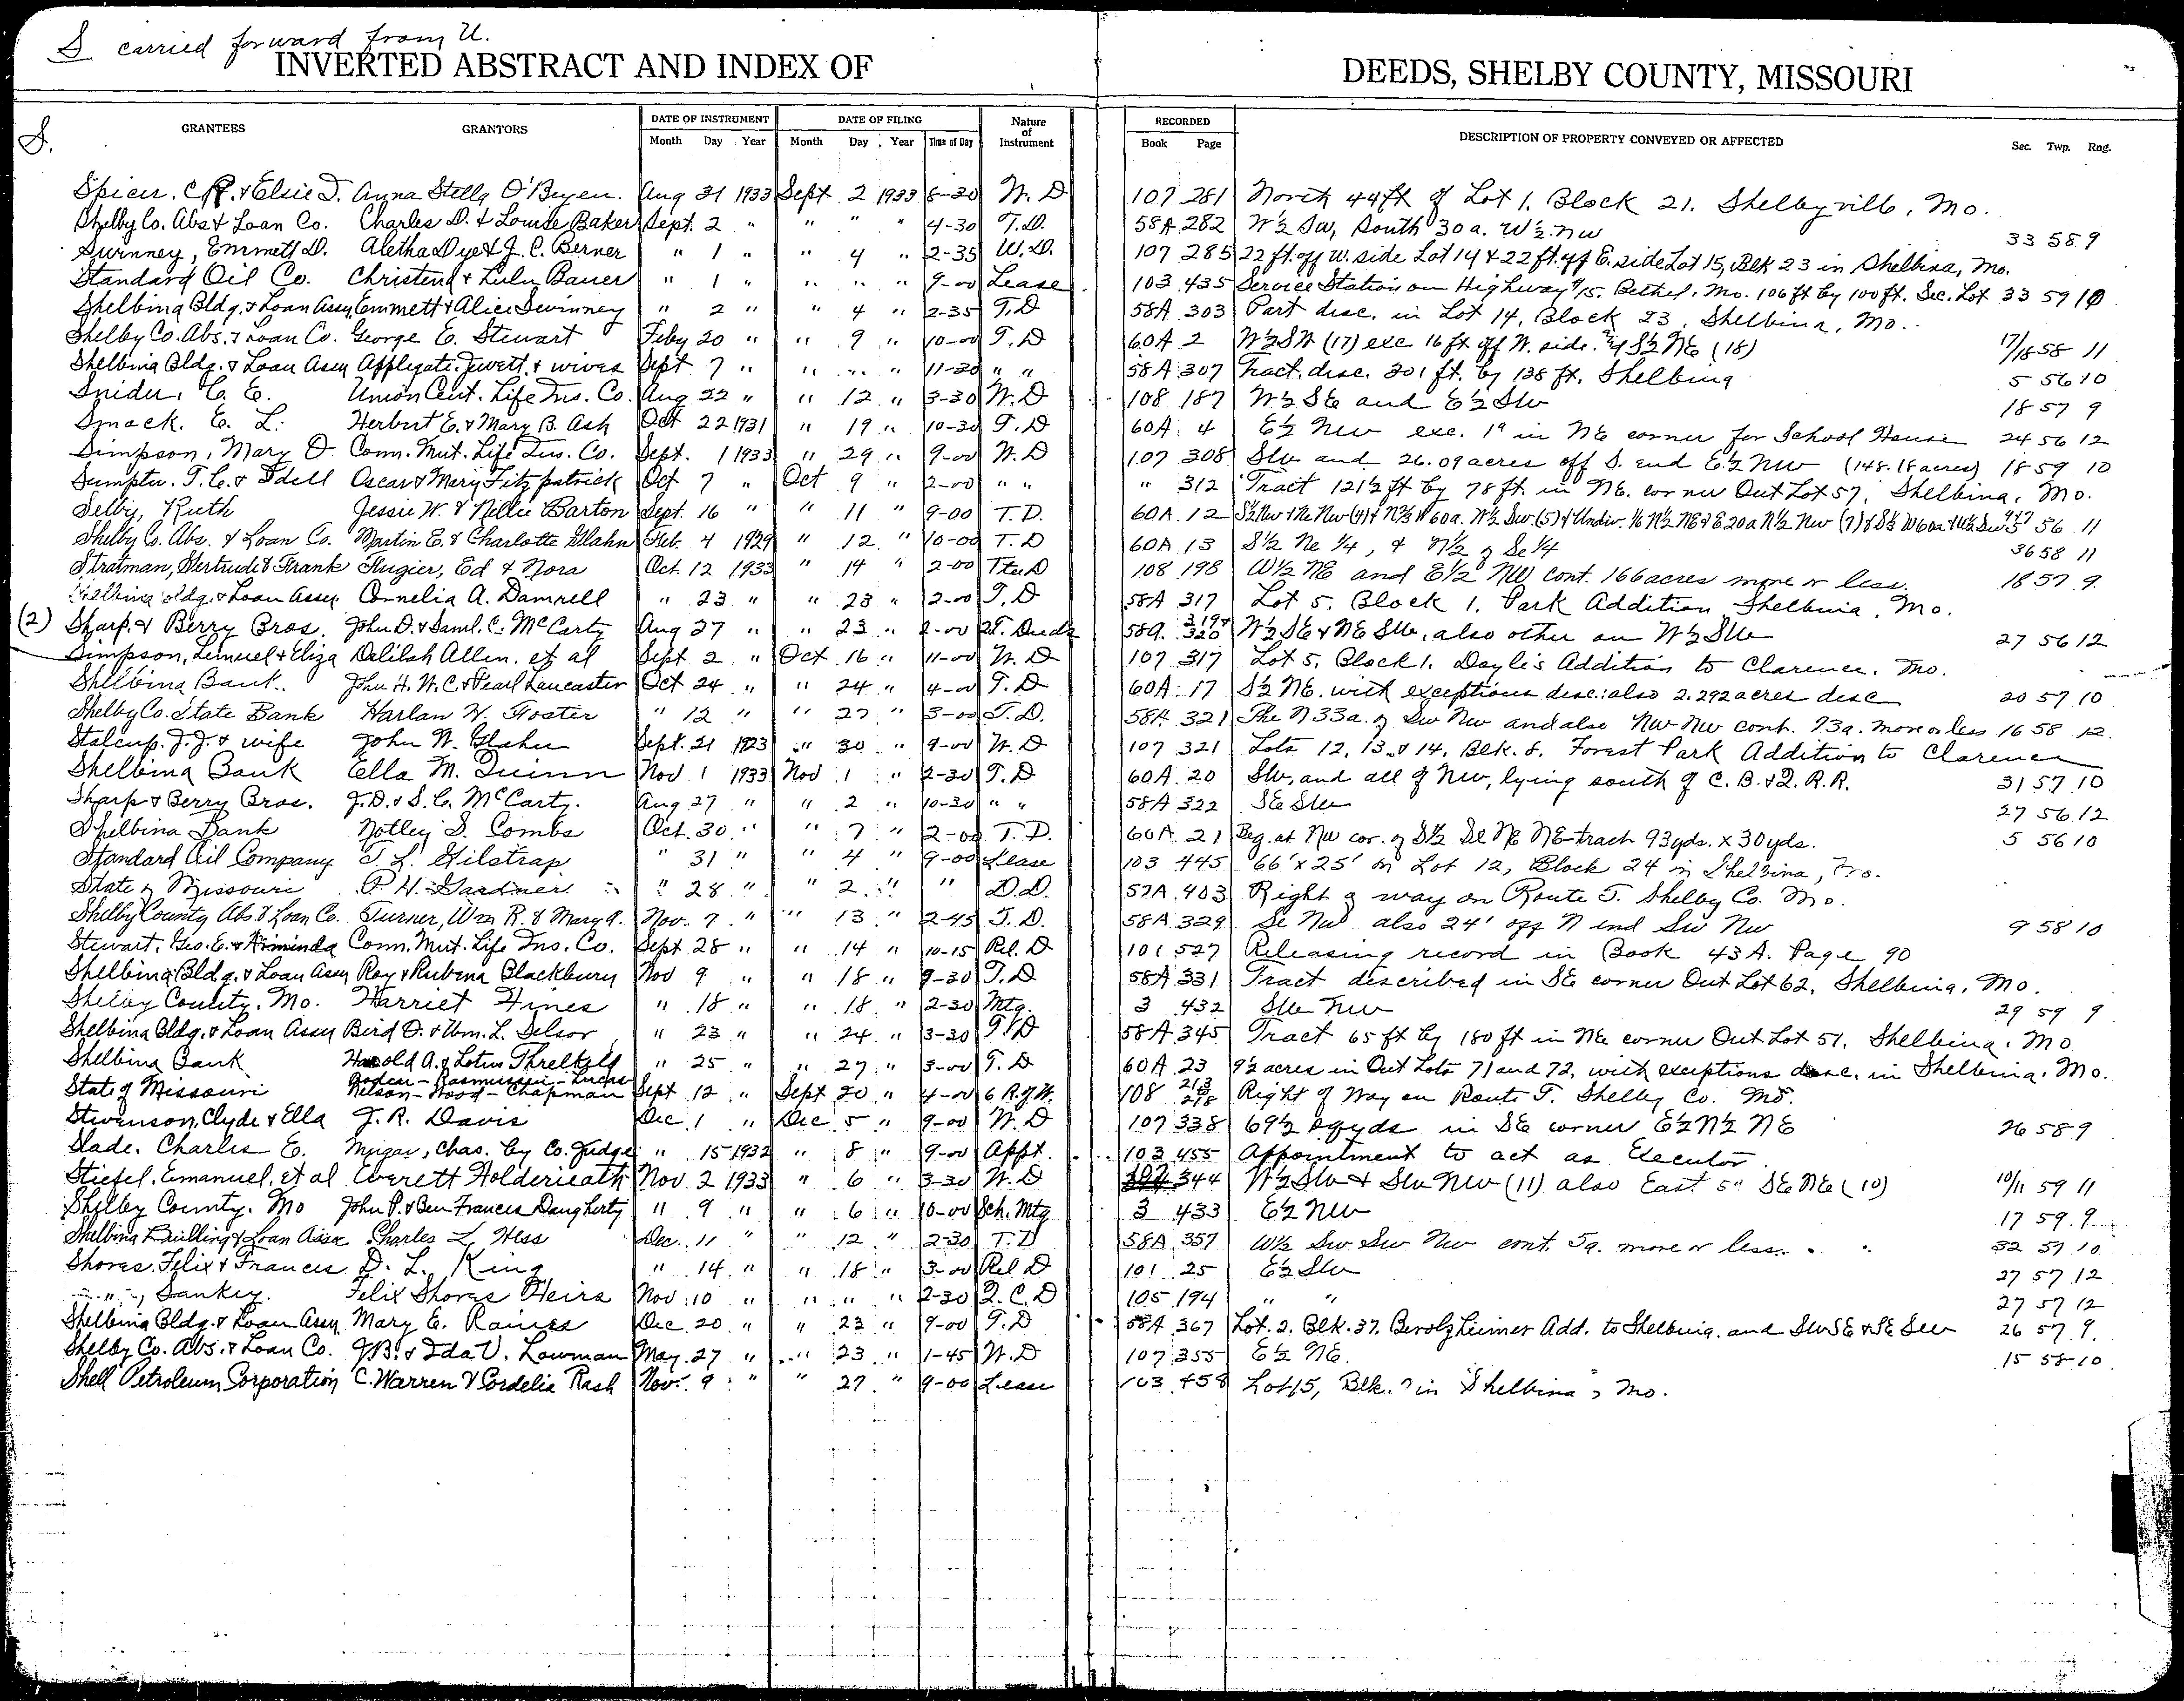 S carried forward from U.
INVERTED ABSTRACT AND INDEX OF DEEDS, SHELBY COUNTY, MISSOURI
S.
GRANTEES GRANTORS DATE OF INSTRUMENT Month Day Year DATE OF FILING Month Day Year Time of Day Nature of Instrument RECORDED Book Page DESCRIPTION OF PROPERTY CONVEYED OR AFFECTED Sec. Twp. Rng.
Spicer, & Elsie Anna Stella O'Bryen. Aug 31 1933 Sept. 2 1933 8-30 W. D 107 281 North 44 ft of Lot 1. Block 21. Shelbyville, Mo.
Shelby Co. Abs & Loan Co. Charles D. & Louise Baker Sept. 2 " " " " 4-30 T.D. 58A 282 W½ SW, South 30 a. W½ NW 33 58 9
Swinney, Emmett D. Aletha Dye & J. C. Berner " 1 " " 4 " 2-35 W.D. 107 285 22 ft. off W. side Lot 14 & 22 ft. off E. side Lot 15, Blk 23 in Shelbina, Mo.
Standard Oil Co. Christena & Lulu Bauer " 1 " " " " 9-00 Lease 103 435 Service Station on Highway #15. Bethel, Mo. 106 ft by 100 ft. Sec. Lot 33 59 10
Shelbina Bldg. & Loan Assn Emmett & Alice Swinney " 2 " " 4 " 2-35 T.D 58A 303 Part desc. in Lot 14, Block 23, Shelbina, Mo.
Shelby Co. Abs. & Loan Co. George E. Stewart Feby 20 " " 9 " 10-00 T.D 60A 2 W½ SW (17) exc 16 ft off W. side. & S½ NE (18) 17/18 58 11
Shelbina Bldg. & Loan Assn Applegate, Jewett, & wives Sept 7 " " " " 11-20 " " 58A 307 Tract. desc. 201 ft. by 138 ft. Shelbina 5 56 10
Snider, C. E. Union Cent. Life Ins. Co. Aug 22 " " 12 " 3-30 W.D 108 187 W½ SE and E½ SW 18 57 9
Smock. E. L. Herbert E. & Mary B. Ash Oct 22 1931 " 19 " 10-30 T.D 60A 4 E½ NW exc. 1a in NE corner for School House 24 56 12
Simpson, Mary O. Conn. Mut. Life Ins. Co. Sept. 1 1933 " 29 " 9-00 W.D 107 308 SW and 26.09 acres off S. end E½ NW (148.18 acres) 18 59 10
Sumpter. T. C. & Idell Oscar & Mary Fitzpatrick Oct 7 " Oct 9 " 2-00 " " " 312 Tract 121½ ft by 78 ft. in NE. corner Out Lot 57, Shelbina, Mo.
Selby, Ruth Jessie W. & Nellie Barton Sept. 16 " " 11 " 9-00 T.D. 60A 12 56 11
Shelby Co. Abs. & Loan Co. Martin E. & Charlotte Glahn Feb. 4 1929 " 12 " 10-00 T.D 60A 13 S½ Ne ¼, & N½ of Se ¼ 36 58 11
Stratman, Gertrude & Frank Flugier, Ed & Nora Oct. 12 1933 " 14 " 2-00 108 198 W½ NE and E½ NW cont. 166 acres more or less. 18 57 9
Shelbina Bldg. & Loan Assn Cornelia A. Damrell " 23 " " 23 " 2-00 T.D 58A 317 Lot 5. Block 1. Park Addition Shelbina, Mo.
(2) Sharp & Berry Bros. John D. & Saml. C. McCarty Aug 27 " " 23 " 2-00 2T. Deeds 58A. 319 & 320 W½ SE & NE SW, also other on W½ SW 27 56 12
Simpson, Lemuel & Eliza Delilah Allen. et al Sept 2 " Oct 16 " 11-00 W.D 107 317 Lot 5, Block 1. Doyle's Addition to Clarence, Mo.
Shelbina Bank. John H. W. C. & Pearl Lancaster Oct 24 " " 24 " 4-00 T.D 60A 17 S½ NE. with exceptions desc: also 2.292 acres desc 20 57 10
Shelby Co. State Bank Harlan W. Foster " 12 " " 27 " 3-00 T.D. 58A 321 The N 33a. of SW NW and also NW NW cont. 73a. more or less 16 58 12.
Stalcup. J. J. & wife John W. Glahn Sept. 21 1923 " 30 " 9-00 W.D 107 321 Lots 12, 13 & 14, Blk. 8. Forest Park Addition to Clarence
Shelbina Bank Ella M. Quinn Nov 1 1933 Nov 1 " 2-30 T.D 60A 20 SW, and all of NW, lying south of C. B. & Q. R.R. 31 57 10
Sharp & Berry Bros. J. D. & S. C. McCarty. Aug 27 " " 2 " 10-30 " " 58A 322 SE SW 27 56 12
Shelbina Bank Notley S. Combs Oct. 30 " " 7 " 2-00 T.D. 60A 21 Beg. at NW cor. of S½ SE NE NE - tract 93 yds. x 30 yds. 5 56 10
Standard Oil Company T. L. Gilstrap " 31 " " 4 " 9-00 Lease 103 445 66' x 25' on Lot 12, Block 24 in Shelbina, Mo.
State of Missouri P. H. Gardiner. " 28 " " 2 " " D.D. 57A 403 Right of way on Route T. Shelby Co. Mo.
Shelby County Abs. & Loan Co. Turner, Wm R. & Mary A. Nov. 7 " " 13 " 2-45 T.D. 58A 329 Se NW also 24' off N end SW NW 9 58 10
Stewart, Geo. E. & Arminda Conn. Mut. Life Ins. Co. Sept 28 " " 14 " 10-15 Rel. D 101 527 Releasing record in Book 43A. Page 90
Shelbina Bldg. & Loan Assn Roy & Rubena Blackburn Nov 9 " " 18 " 9-30 T.D 58A 331 Tract described in SE corner Out Lot 62, Shelbina, Mo.
Shelby County, Mo. Harriet Hines " 18 " " 18 " 2-30 Mtg. 3 432 SW NW 29 59 9
Shelbina Bldg. & Loan Assn Bird O. & Wm. L. Selsor " 23 " " 24 " 3-30 T.D 58A 345 Tract 65 ft by 180 ft in NE corner Out Lot 51, Shelbina, Mo
Shelbina Bank Harold A. & Lotus Threlkeld " 25 " " 27 " 3-00 T.D 60A 23 9½ acres in Out Lots 71 and 72, with exceptions desc. in Shelbina, Mo.
State of Missouri Rasmussen - Lucas Nelson - Wood - Chapman Sept 12 " Sept 20 " 4-00 6 R.of W. 108 213 218 Right of Way on Route T. Shelby Co. Mo.
Stevenson, Clyde & Ella J. R. Davis Dec. 1 " Dec 5 " 9-00 W.D 107 338 69½ sq yds in SE corner E½ N½ NE 26 58 9
Slade. Charles E. Chas. by Co. Judge " 15 1932 " 8 " 9-00 Appt. 103 455 Appointment to act as Executor
Stiefel, Emanuel, et al Everett Holderieath Nov. 2 1933 " 6 " 3-30 W.D 344 W½ SW & SW NW (11) also East 5a SE NE (10) 10/11 59 11
Shelby County. Mo John P. & Ben Frances Daugherty " 9 " " 6 " 10-00 Sch. Mtg 3 433 E½ NW 17 59 9
Shelbina Building & Loan Assn Charles L. Hess Dec. 11 " " 12 " 2-30 T.D 58A 357 W½ SW SW NW cont. 5a. more or less. 32 57 10
Shores, Felix & Frances D. L. King " 14 " " 18 " 3-00 Rel D 101 25 E½ SW 27 57 12
" , Sankey. Felix Shores Heirs Nov. 10 " " " " 2-30 Q.C.D 105 194 " " 27 57 12
Shelbina Bldg. & Loan Assn Mary E. Raines Dec. 20 " " 23 " 9-00 T.D 58A 367 Lot. 2. Blk. 37. Berolzheimer Add. to Shelbina, and SW SE & SE SW 26 57 9.
Shelby Co. Abs. & Loan Co. J.B. & Ida V. Lowman May 27 " " 23 " 1-45 W.D 107 355 E½ NE. 15 58 10
Shell Petroleum Corporation C. Warren & Cordelia Rash Nov. 9 " " 27 " 9-00 Lease 103 458 Lot 15, Blk. 7 in Shelbina, Mo.